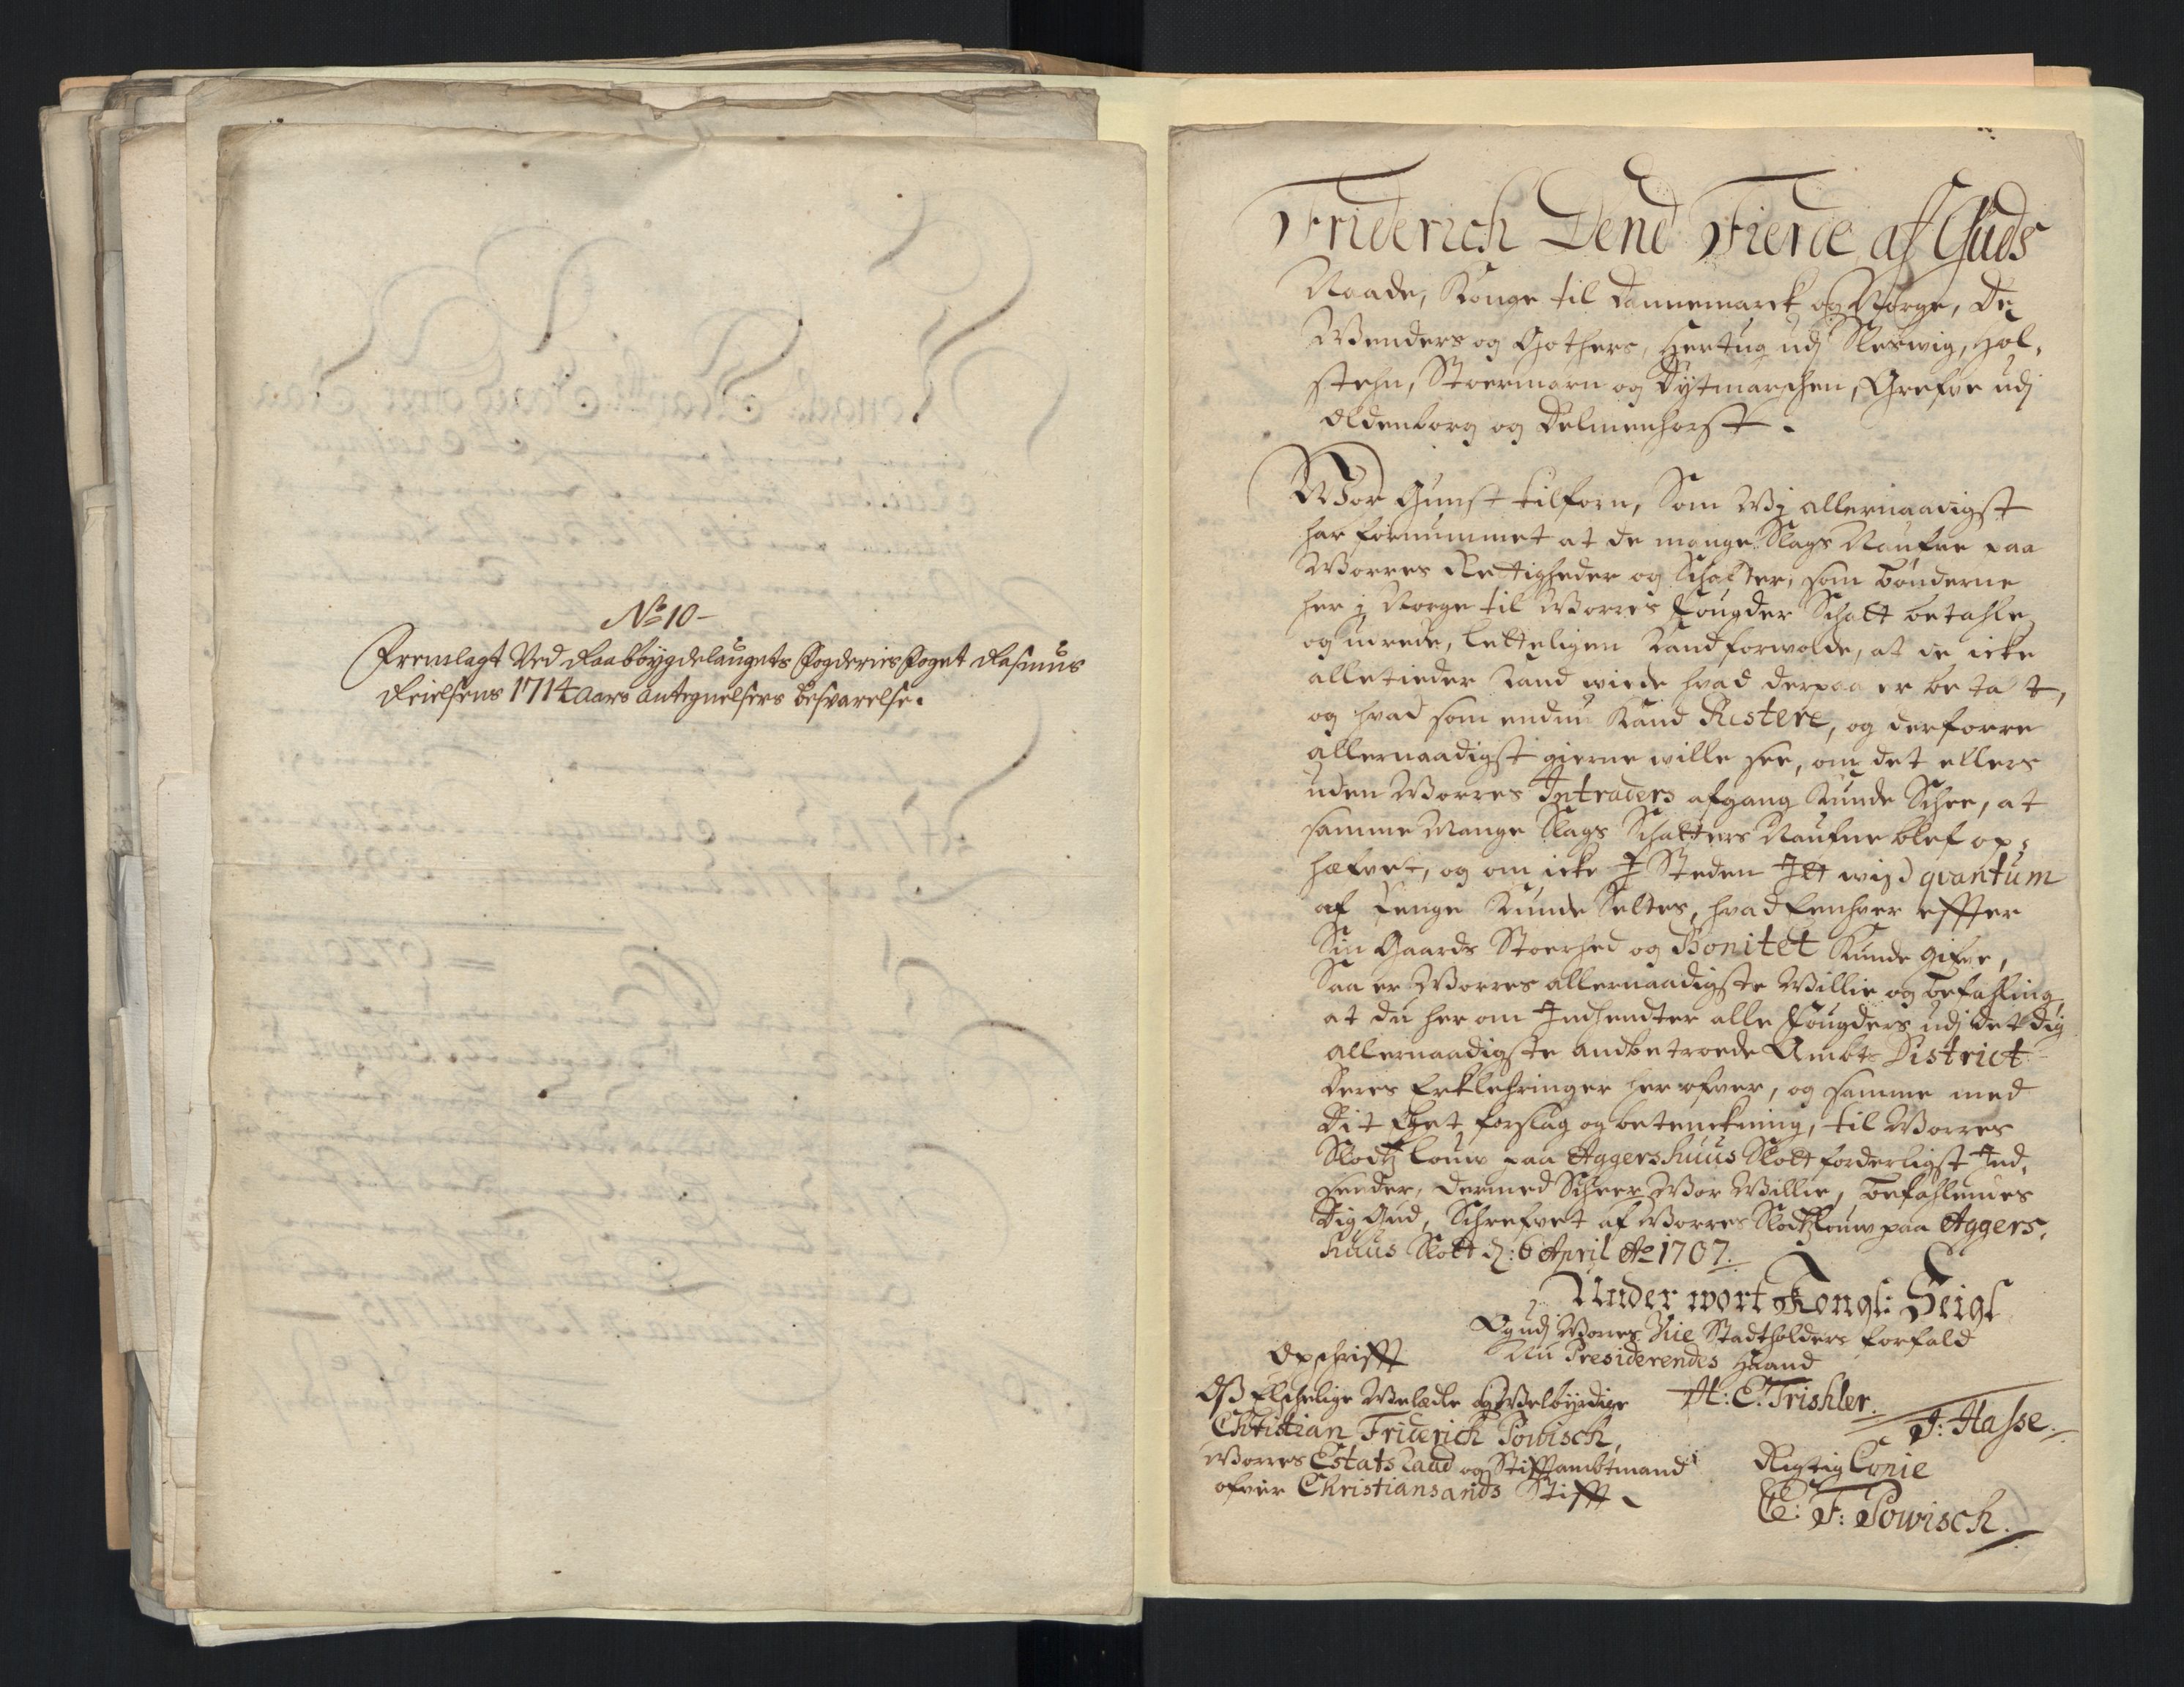 No 10 -
Fremlagt Ved Raabøygdelaugets Fogderies Foget Rasmus
Reielsens 1714 Aars Antegnelsers besvarelse.
Friderich Dend Fierde af Guds
Naade, Konge til Dannemarck og Norge, De
Wenders og Gothers, Hertug udj Sleswig, Hol,
stehn, Stoermarn og Dytmarschen, Grefve udj
Oldenborg og Delmenhorst.
Wor Gunst tilforn, Som Wj allernaadigst
har fornummet at de mange Slags Naufne paa
Worres Rettigheder og Schatter, som bønderne
her j Norge til Worres Fougder Schall betahle
og udrede, letteligen Kand forwolde, at de icke
alletieder Kand wiede hvad derpaa er betalt,
og hvad som endnu Kand Restere, og derforre
allernaadigst gierne wille see, om det ellers
uden Worres Intraders afgang Kunde Schee, at
samme Mange Slags Schatters Naufne blef op,
hæfvet, og om icke J Steden Itt wist qvantum
af Penge Kunde Settes, hvad Eenhver effter
Sin Gaards Stoerhed og Bonitet Kunde gifve,
Saa er Worres allernaadigste Willie og befahling,
at du her om Indhendter alle Fougders udj det dig
allernaadigste andbetroede Ambts District
Deres Erklehringer her ofver, og samme med
Dit Eget forslag og betenckning, til Worres
Slodtz Louw paa Aggershuus Slott forderligst Ind,
sender, dermed Scheer Wor Willie, befahlendes
Dig Gud, Schrefvet af Worres Slodtzlouw paa Aggers,
huus Slott d: 6 April Ao 1707.
Under wort Kongl: Seigl
Og udj Worres Vice Stadtholders forfald
Nu Presiderendes Haand
H: C: Trishler.
J: Hasse.
Opschrifft
Oß Elschelige Welædle og Welbyrdige
Christian Friderich Powisch,
Worres Estats Raad og Stifftambtmand
ofver Christiansands Stifft
Rigtig Copie
C: F: Powisch.